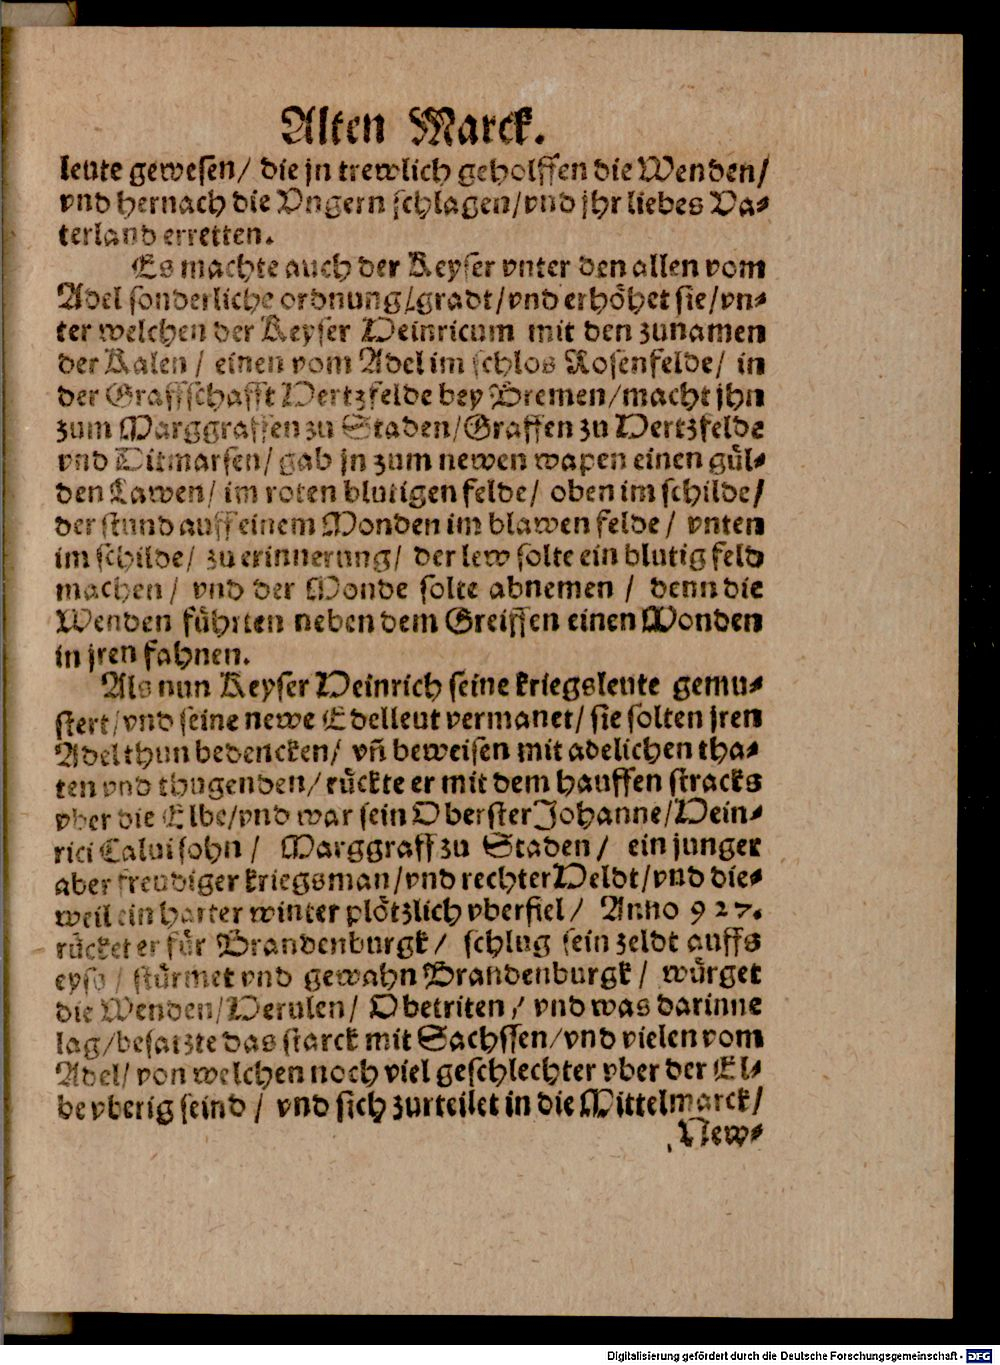 Alten Marck.
leute gewesen/ die jn trewlich geholffen die Wenden/
vnd hernach die Vngern schlagen/vnd jhr liebes Va⸗
terland erretten.
Es machte auch der Keyser vnter den allen vom
Adel sonderliche ordnung/gradt/vnd erhöhet sie/vn⸗
ter welchen der Keyser Heinricum mit den zunamen
der Kalen/ einen vom Adel im schlos Rosenfelde/ in
der Graffschafft Hertzfelde bey Bremen/macht jhn
zum Marggraffen zu Staden/Graffen zu Hertzfelde
vnd Ditmarsen/ gab jn zum newen wapen einen gül⸗
den Lawen/ im roten blutigen felde/ oben im schilde/
der stund auff einem Monden im blawen felde/ vnten
im schilde/ zu erinnerung/ der lew solte ein blutig feld
machen/ vnd der Monde solte abnemen/ denn die
Wenden führten neben dem Greiffen einen Monden
in jren fahnen.
Als nun Keyser Heinrich seine kriegsleute gemu⸗
stert/vnd seine newe Edelleut vermanet/ sie solten jren
Adel thun bedencken/ vñ beweisen mit adelichen tha⸗
ten vnd thugenden/ rückte er mit dem hauffen stracks
vber die Elbe/vnd war sein Oberster Johanne/Hein⸗
rici Calui sohn/ Marggraff zu Staden/ ein junger
aber freudiger kriegsman/vnd rechter Heldt/vnd die⸗
weil ein harter winter plötzlich vberfiel/ Anno 927.
rücket er für Brandenburgk/ schlug sein zeldt auffs
eyss/ stürmet vnd gewahn Brandenburgk/ würget
die Wenden/Herulen/ Obetriten/ vnd was darinne
lag/besatzte das starck mit Sachssen/vnd vielen vom
Adel/ von welchen noch viel geschlechter vber der El⸗
be vberig seind/ vnd sich zurteilet in die Mittelmarck/
New⸗
Digitalisierung gefördert durch die Deutsche Forschungsgemeinschaft - DFG